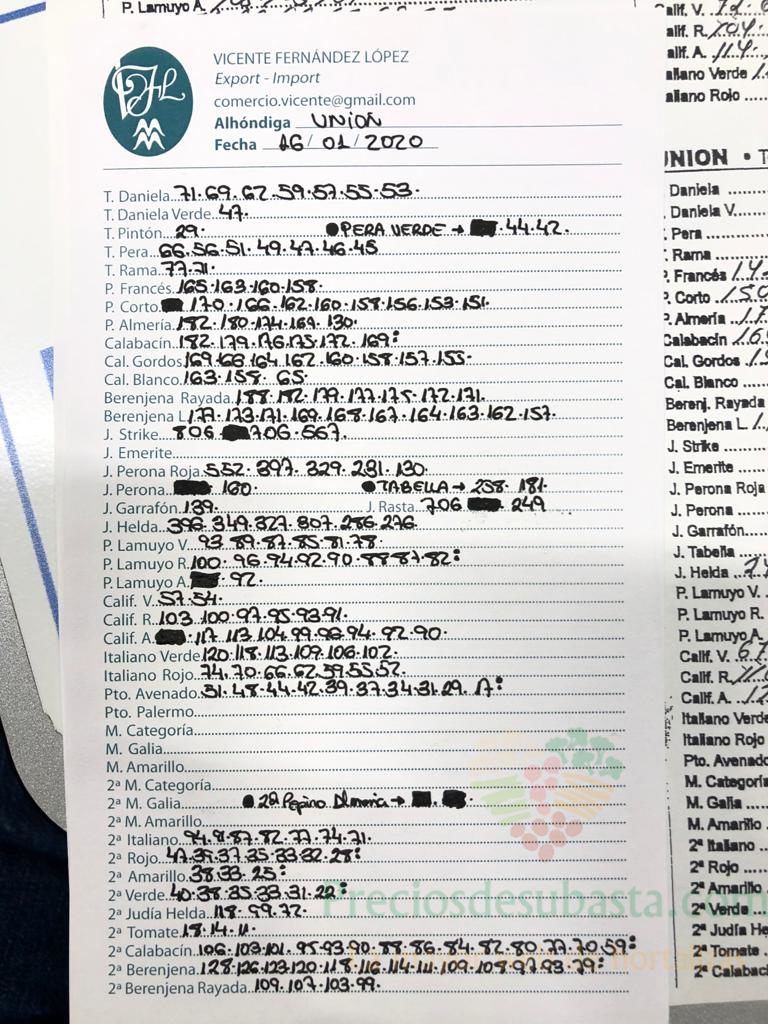 P. Lamuyo A.
VICENTE FERNÁNDEZ LÓPEZ
Export - Import
comercio.vicente@gmail.com
Alhóndiga UNION
Fecha 16/01/2020
T. Daniela 71.69.62.59.57.55.53.
T. Daniela Verde 47.
T. Pintón 29. ●PERA VERDE → .44.42.
T. Pera 66.56.51.49.47.46.45
T. Rama 77.71.
P. Francés 165.163.160.158.
P. Corto 170.166.162.160.158.156.153.151.
P. Almería 182.180.174.169.130.
Calabacín 182.179.176.175.172.169:
Cal. Gordos 169.166.164.162.160.158.157.155.
Cal. Blanco 163.158.65.
Berenjena Rayada 188.182.179.177.175.172.171.
Berenjena L 179.173.171.169.168.167.164.163.162.157.
J. Strike 806. 706.567.
J. Emerite
J. Perona Roja 552.397.329.231.130.
J. Perona 160. ●TABELLA → 258.181.
J. Garrafón 139. J. Rasta 706 249
J. Helda 396.349.327.307.286.276.
P. Lamuyo V. 93.89.87.85.81.78.
P. Lamuyo R. 100.96.94.92.90.88.87.82:
P. Lamuyo A. .92.
Calif. V. 57.54.
Calif. R. 103.100.97.95.93.91.
Calif. A. .117.113.104.99.96.94.92.90.
Italiano Verde 120.118.113.109.106.102.
Italiano Rojo 74.70.66.62.59.55.52.
Pto. Avenado 51.48.44.42.39.37.34.31.29.17:
Pto. Palermo
M. Categoría
M. Galia
M. Amarillo
2ª M. Categoría
2ª M. Galia ●2ª Pepino Almeria →
2ª M. Amarillo
2ª Italiano 87.82.77.74.71.
2ª Rojo 47.39.37.35.33.32.28:
2ª Amarillo 38.33.25:
2ª Verde 40.38.35.33.31.22:
2ª Judía Helda 118.99.72.
2ª Tomate 18.14.11.
2ª Calabacín 106.103.101.95.93.90.88.86.84.82.80.77.70.59:
2ª Berenjena 128.126.123.120.118.116.114.111.109.108.97.93.79:
2ª Berenjena Rayada 109.107.103.99.
Preciosdesubasta.com
Calif. V.
Calif. R.
Calif. A.
Italiano Verde
Italiano Rojo
UNION •
Daniela
Daniela V.
Pera
Rama
P. Francés
P. Corto
P. Almería
Calabacín
Cal. Gordos
Cal. Blanco
Berenj. Rayada
Berenjena L.
J. Strike
J. Emerite
J. Perona Roja
J. Perona
J. Garrafón
J. Tabella
J. Helda
P. Lamuyo V.
P. Lamuyo R.
P. Lamuyo A.
Calif. V.
Calif. R.
Calif. A.
Italiano Verde
Italiano Rojo
Pto. Avenado
M. Categoría
M. Galia
M. Amarillo
2ª Italiano
2ª Rojo
2ª Amarillo
2ª Verde
2ª Judía He
2ª Tomate
2ª Calabací